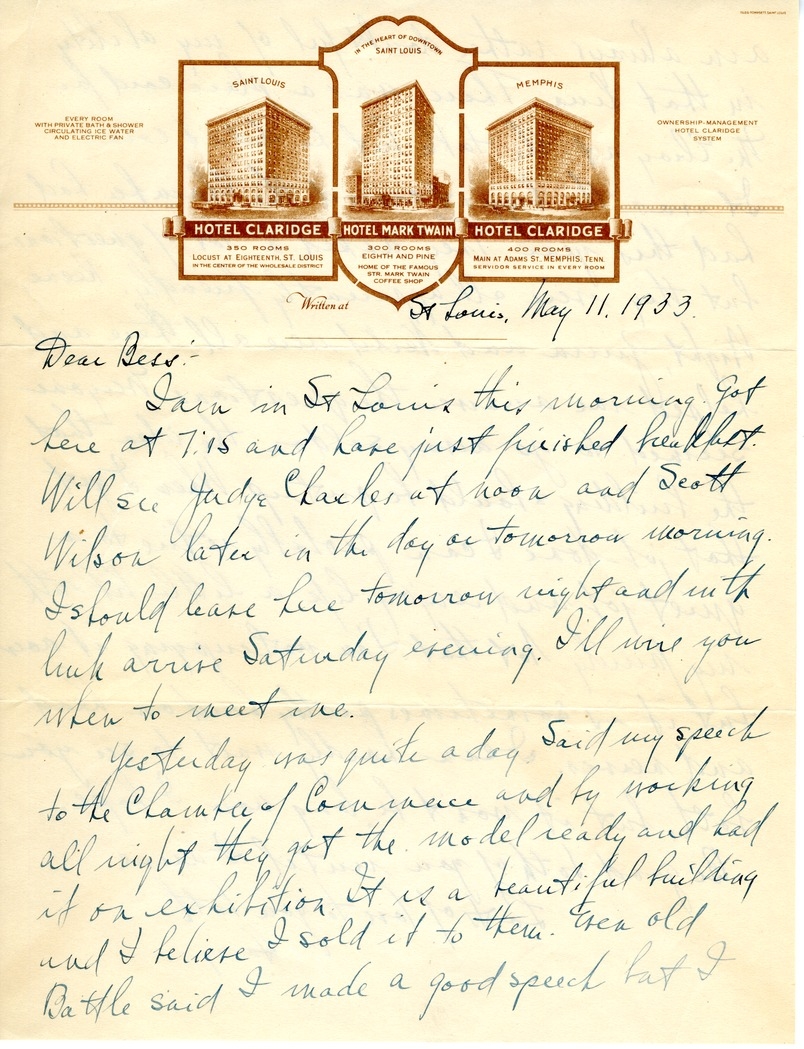 IN THE HEART OF DOWNTOWN
SAINT LOUIS
SAINT LOUIS
MEMPHIS
EVERY ROOM
WITH PRIVATE BATH & SHOWER
CIRCULATING ICE WATER
AND ELECTRIC FAN
OWNERSHIP-MANAGEMENT
HOTEL CLARIDGE
SYSTEM
HOTEL CLARIDGE
350 ROOMS
LOCUST AT EIGHTEENTH, ST. LOUIS
IN THE CENTER OF THE WHOLESALE DISTRICT
HOTEL MARK TWAIN
300 ROOMS
EIGHTH AND PINE
HOME OF THE FAMOUS
STR. MARK TWAIN
COFFEE SHOP
HOTEL CLARIDGE
400 ROOMS
MAIN AT ADAMS ST. MEMPHIS, TENN.
SERVIDOR SERVICE IN EVERY ROOM
Written at St Louis, May 11, 1933.
Dear Bess:-
I am in St Louis this morning. Got
here at 7:15 and have just finished breakfast.
Will see Judge Charles at noon and Scott
Wilson later in the day or tomorrow morning.
I should leave here tomorrow night and with
luck arrive Saturday evening. I'll wire you
when to meet me.
Yesterday was quite a day. Said my speech
to the Chamber of Commerce and by working
all night they got the model ready and had
it on exhibition. It is a beautiful building
and I believe I sold it to them. Even old
Battle said I made a good speech but I